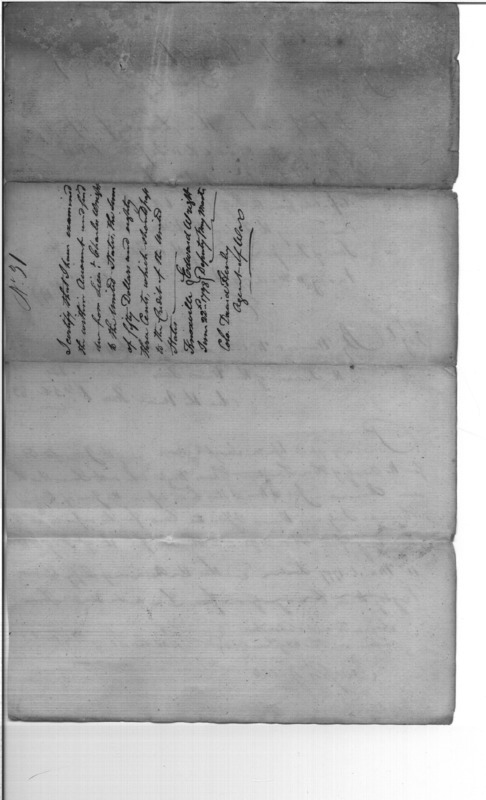 No. 31
I certify that I have examined
the within Account and find
due from Lieut. Charles Wright
to the United States the Sum
of fifty Dollars and eighty
three Cents which should pass
to the Credit of the United
States
Knoxville Edward Wright
June 22d. 1798 Deputy Pay Mast.
Col. David Henley
Agent of War